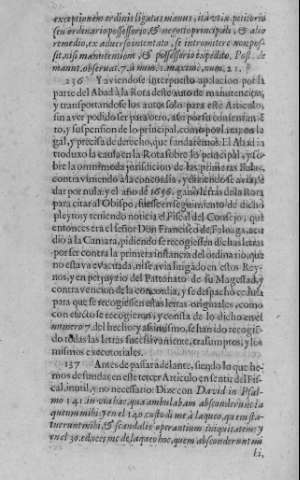 exceptionem ordinis ligatas manus, ita vt in petitorio
seu ordinario possessorio, & negotio principali, & alio
remedio, ex aduerso intentato, se intromittere non possit,
nisi manutentium, & possessorio expedito, Post. de
manut. obseruat. 7. à num. 1. maximè, num. 21.
136 Y aviendose interpuesto apelacion por la
parte del Abad à la Rota deste auto de manutencion,
y transportandose los autos solo para este Articulo,
sin aver podido ser para otro, assi por su consentimiento,
y suspension de lo principal, como por la razon legal,
y precisa de derecho, que fundarèmos. El Abad introduxo
la causa en la Rota sobre lo principal, y sobre
la omnimoda jurisdicion de las primeras Bulas,
contraviniendo à la concordia, y haziendose
dar por nula; y el año de 1656. ganò letras de la Rota
para citar al Obispo, y se fuesse en seguimiento de dicho
pleyto; y teniendo noticia el Fiscal del Consejo, que
entonces era el señor Don Francisco de Feloaga, acudiò
à la Camara, pidiendo se recogiessen dichas letras
por ser contra la primera instancia del ordinario, que
no estava evacuada, ni se avia litigado en estos Reynos,
y en perjuyzio del Patronato de su Magestad, y
contravencion de la concordia, y se despachò cedula
para que se recogiessen estas letras originales, como
con efecto se recogieron, y consta de lo dicho en el
numero 7. del hecho; y assimismo, se han ido recogiendo
todas las letras successivamente, trasumptos, y los
mismos executoriales.
137 Antes de passar adelante, siendo lo que hemos
de fundar en este tercer Articulo en sentir del Fiscal,
inutil, y no necessario: Dize con David in Psalmo
141 in via hac, qua ambulabam absconderunt laqueum
mihi: y en el 140. custodi me à laqueo, quem statuerunt
mihi, & scandalis operantium iniquitatem: y
en el 30. educes me de laqueo hoc, quem absconderunt mihi,